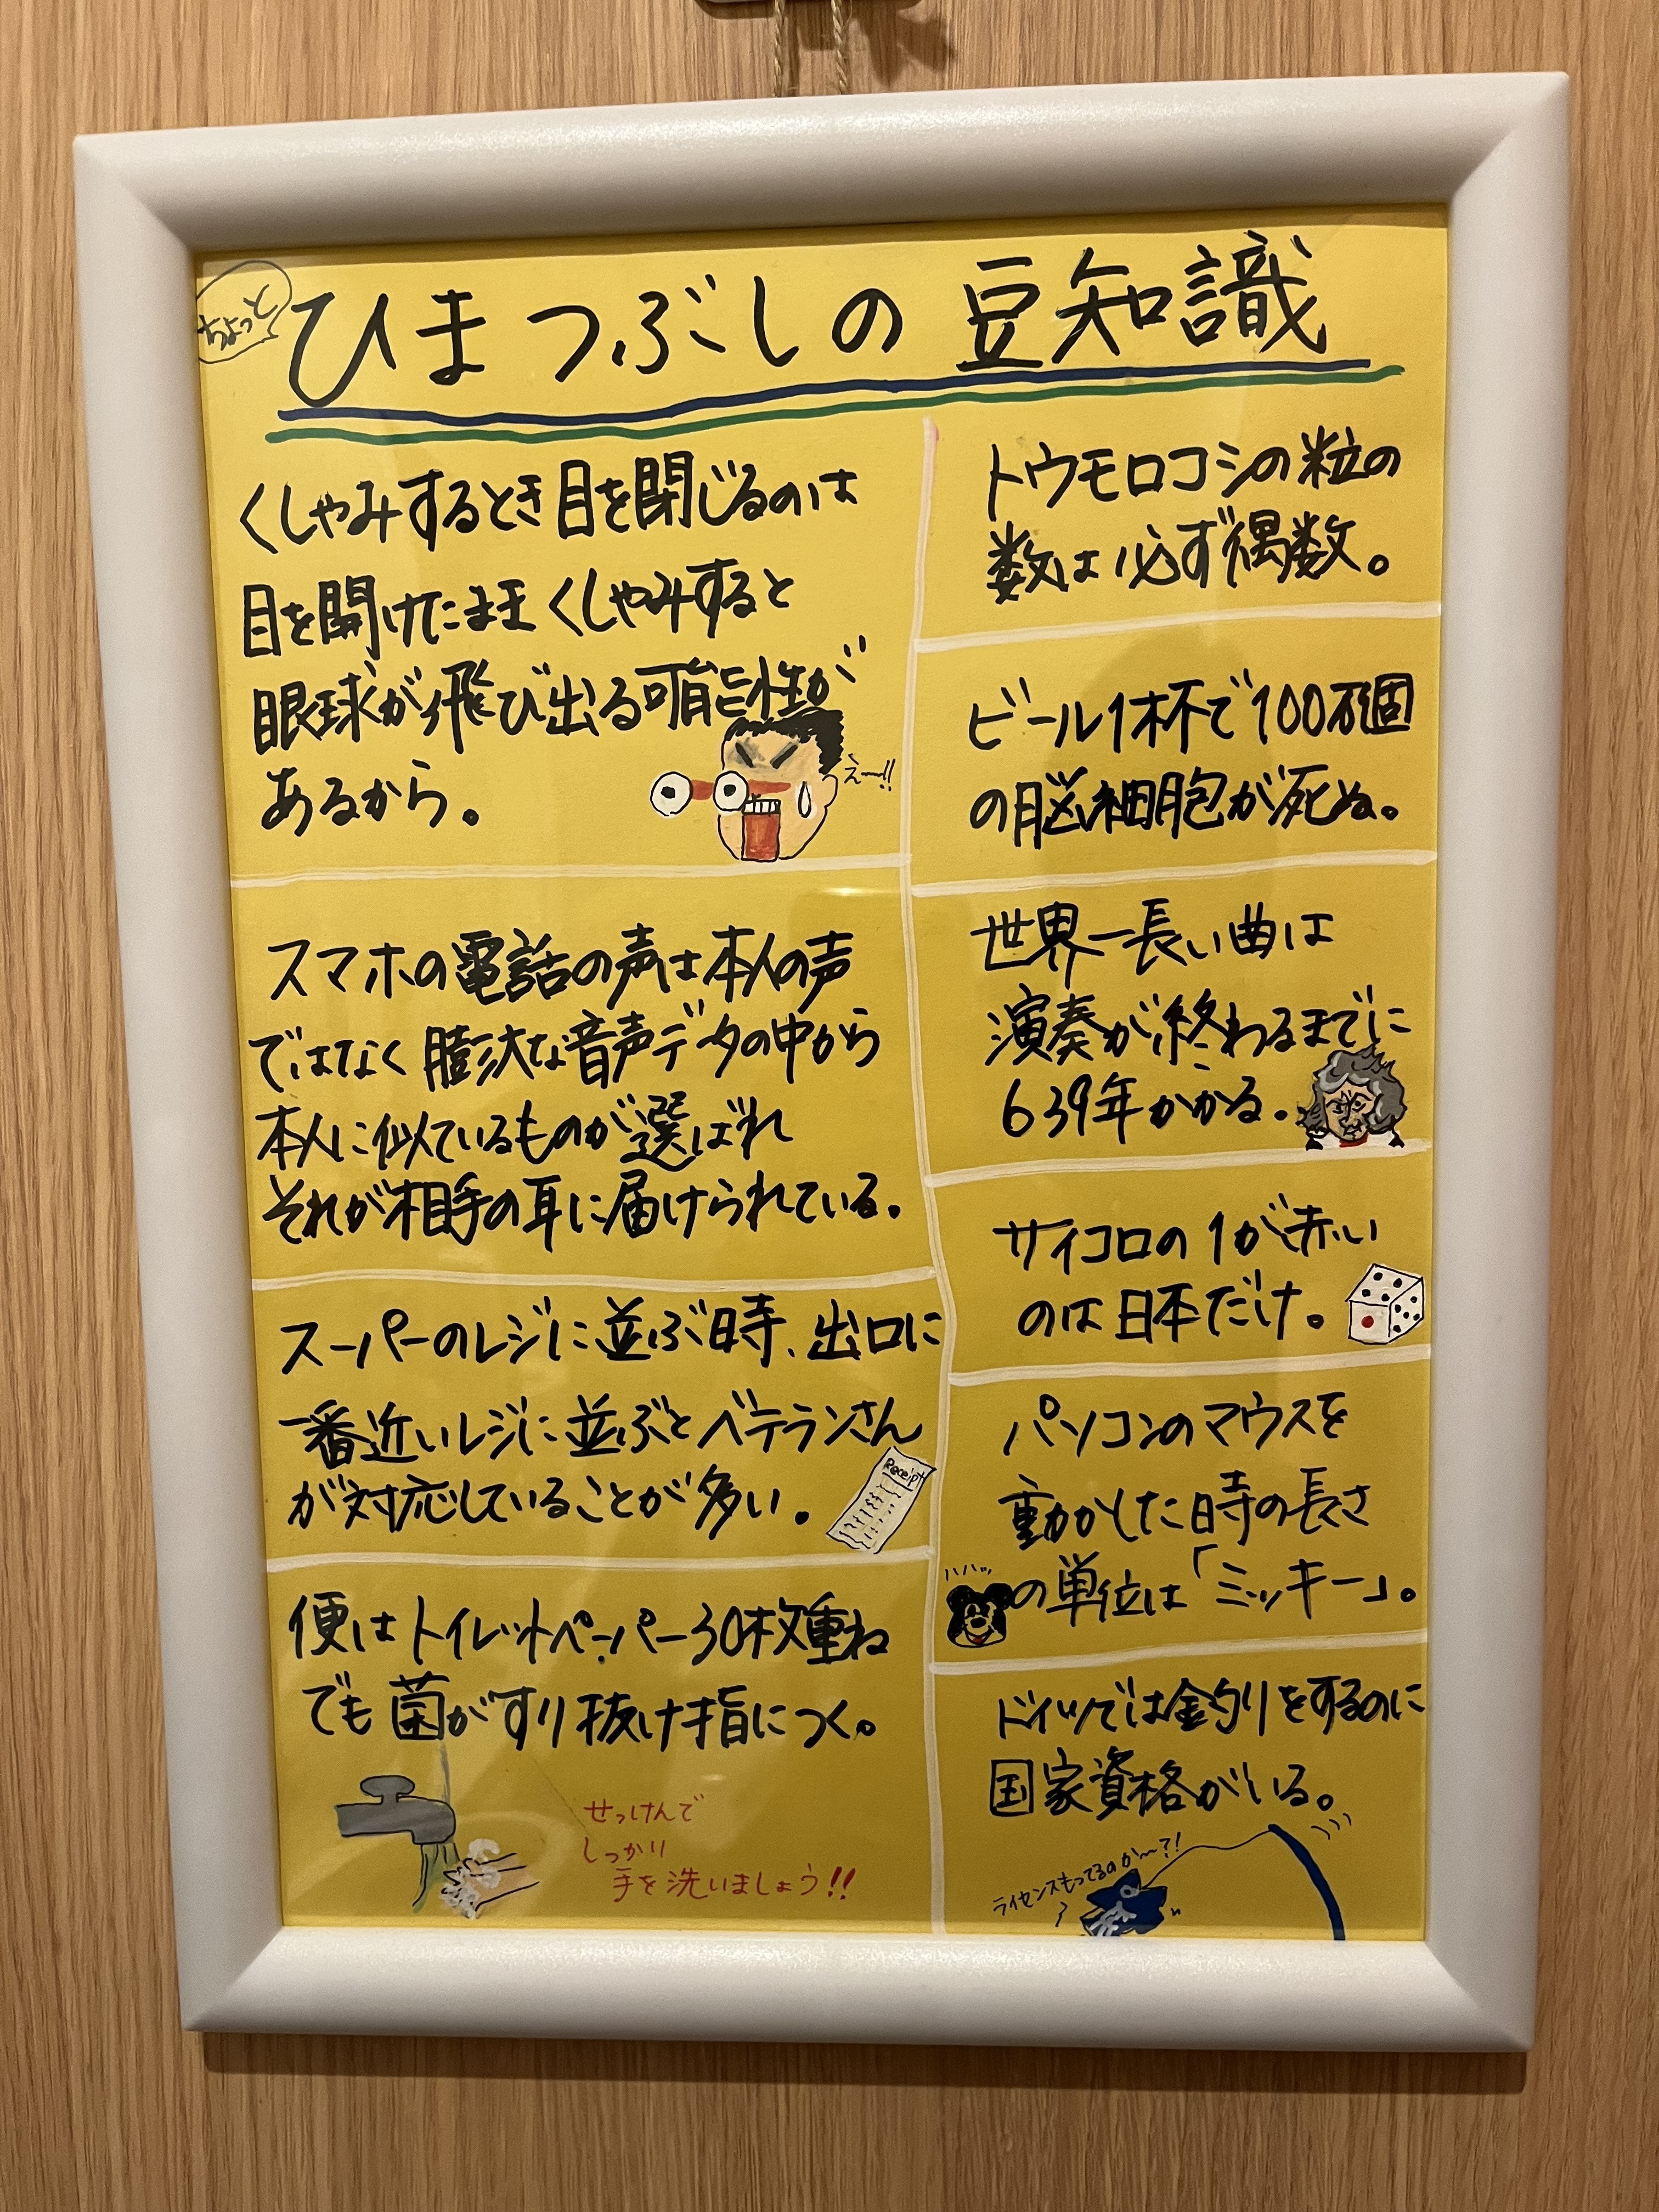 ちょっと
ひまつぶしの豆知識
くしゃみするとき目を閉じるのは
目を開けたままくしゃみすると
眼球が飛び出る可能性が
あるから。
えー!!
スマホの電話の声は本人の声
ではなく膨大な音声データの中から
本人に似ているものが選ばれ
それが相手の耳に届けられている。
スーパーのレジに並ぶ時、出口に
一番近いレジに並ぶとベテランさん
が対応していることが多い。
Receipt
便はトイレットペーパー30枚重ね
でも菌がすり抜け指につく。
せっけんで
しっかり
手を洗いましょう!!
トウモロコシの粒の
数は必ず偶数。
ビール1杯で100万個
の脳細胞が死ぬ。
世界一長い曲は
演奏が終わるまでに
639年かかる。
サイコロの1が赤い
のは日本だけ。
パソコンのマウスを
動かした時の長さ
の単位は「ミッキー」。
ハハッ
ドイツでは金釣りをするのに
国家資格がいる。
ライセンスもってるのか〜?!